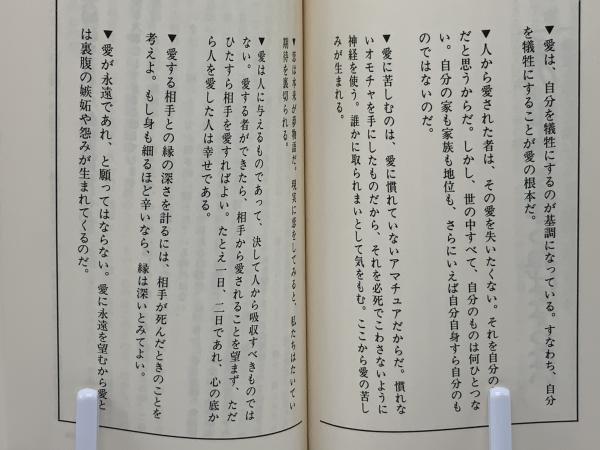 ▼愛は、自分を犠牲にするのが基調になっている。すなわち、自分
を犠牲にすることが愛の根本だ。
▼人から愛された者は、その愛を失いたくない。それを自分の
だと思うからだ。しかし、世の中すべて、自分のものは何ひとつな
い。自分の家も家族も地位も、さらにいえば自分自身すら自分のも
のではないのだ。
▼愛に苦しむのは、愛に慣れていないアマチュアだからだ。慣れな
いオモチャを手にしたものだから、それを必死でこわさないように
神経を使う。誰かに取られまいとして気をもむ。ここから愛の苦し
みが生まれる。
▼恋は本来が夢物語だ。現実に恋をしてみると、私たちはたいてい
期待を裏切られる。
▼愛は人に与えるものであって、決して人から吸収すべきものでは
ない。愛する者ができたら、相手から愛されることを望まず、ただ
ひたすら相手を愛すればよい。たとえ一日、二日であれ、心の底か
ら人を愛した人は幸せである。
▼愛する相手との縁の深さを計るには、相手が死んだときのことを
考えよ。もし身も細るほど辛いなら、縁は深いとみてよい。
▼愛が永遠であれ、と願ってはならない。愛に永遠を望むから愛と
は裏腹の嫉妬や怨みが生まれてくるのだ。